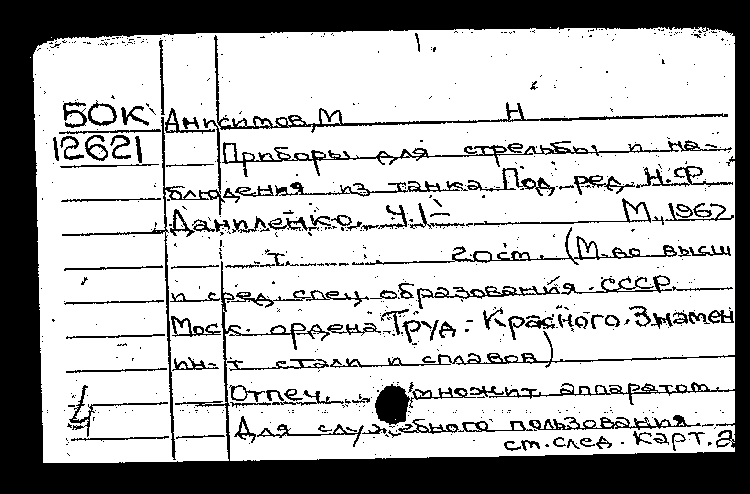 50К Анисимов, М Н
12621 Приборы для стрельбы и на-
блюдения из танка Под ред. Н.Ф.
Даниленко. Ч.1- М., 1967
т. 20 см. (М-во высш
и сред. спец. образования СССР.
Моск. ордена Труд. Красного Знамен
ин-т стали и сплавов).
Отпеч. множит аппаратом.
Для служебного пользования.
см. след. карт. 2